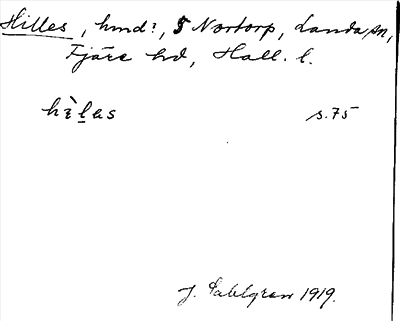 Hilles, hmd?, 5 Nortorp, Landa sn,
Fjäre hd, Hall. l.
hìlas s.75
J. Sahlgren 1919.